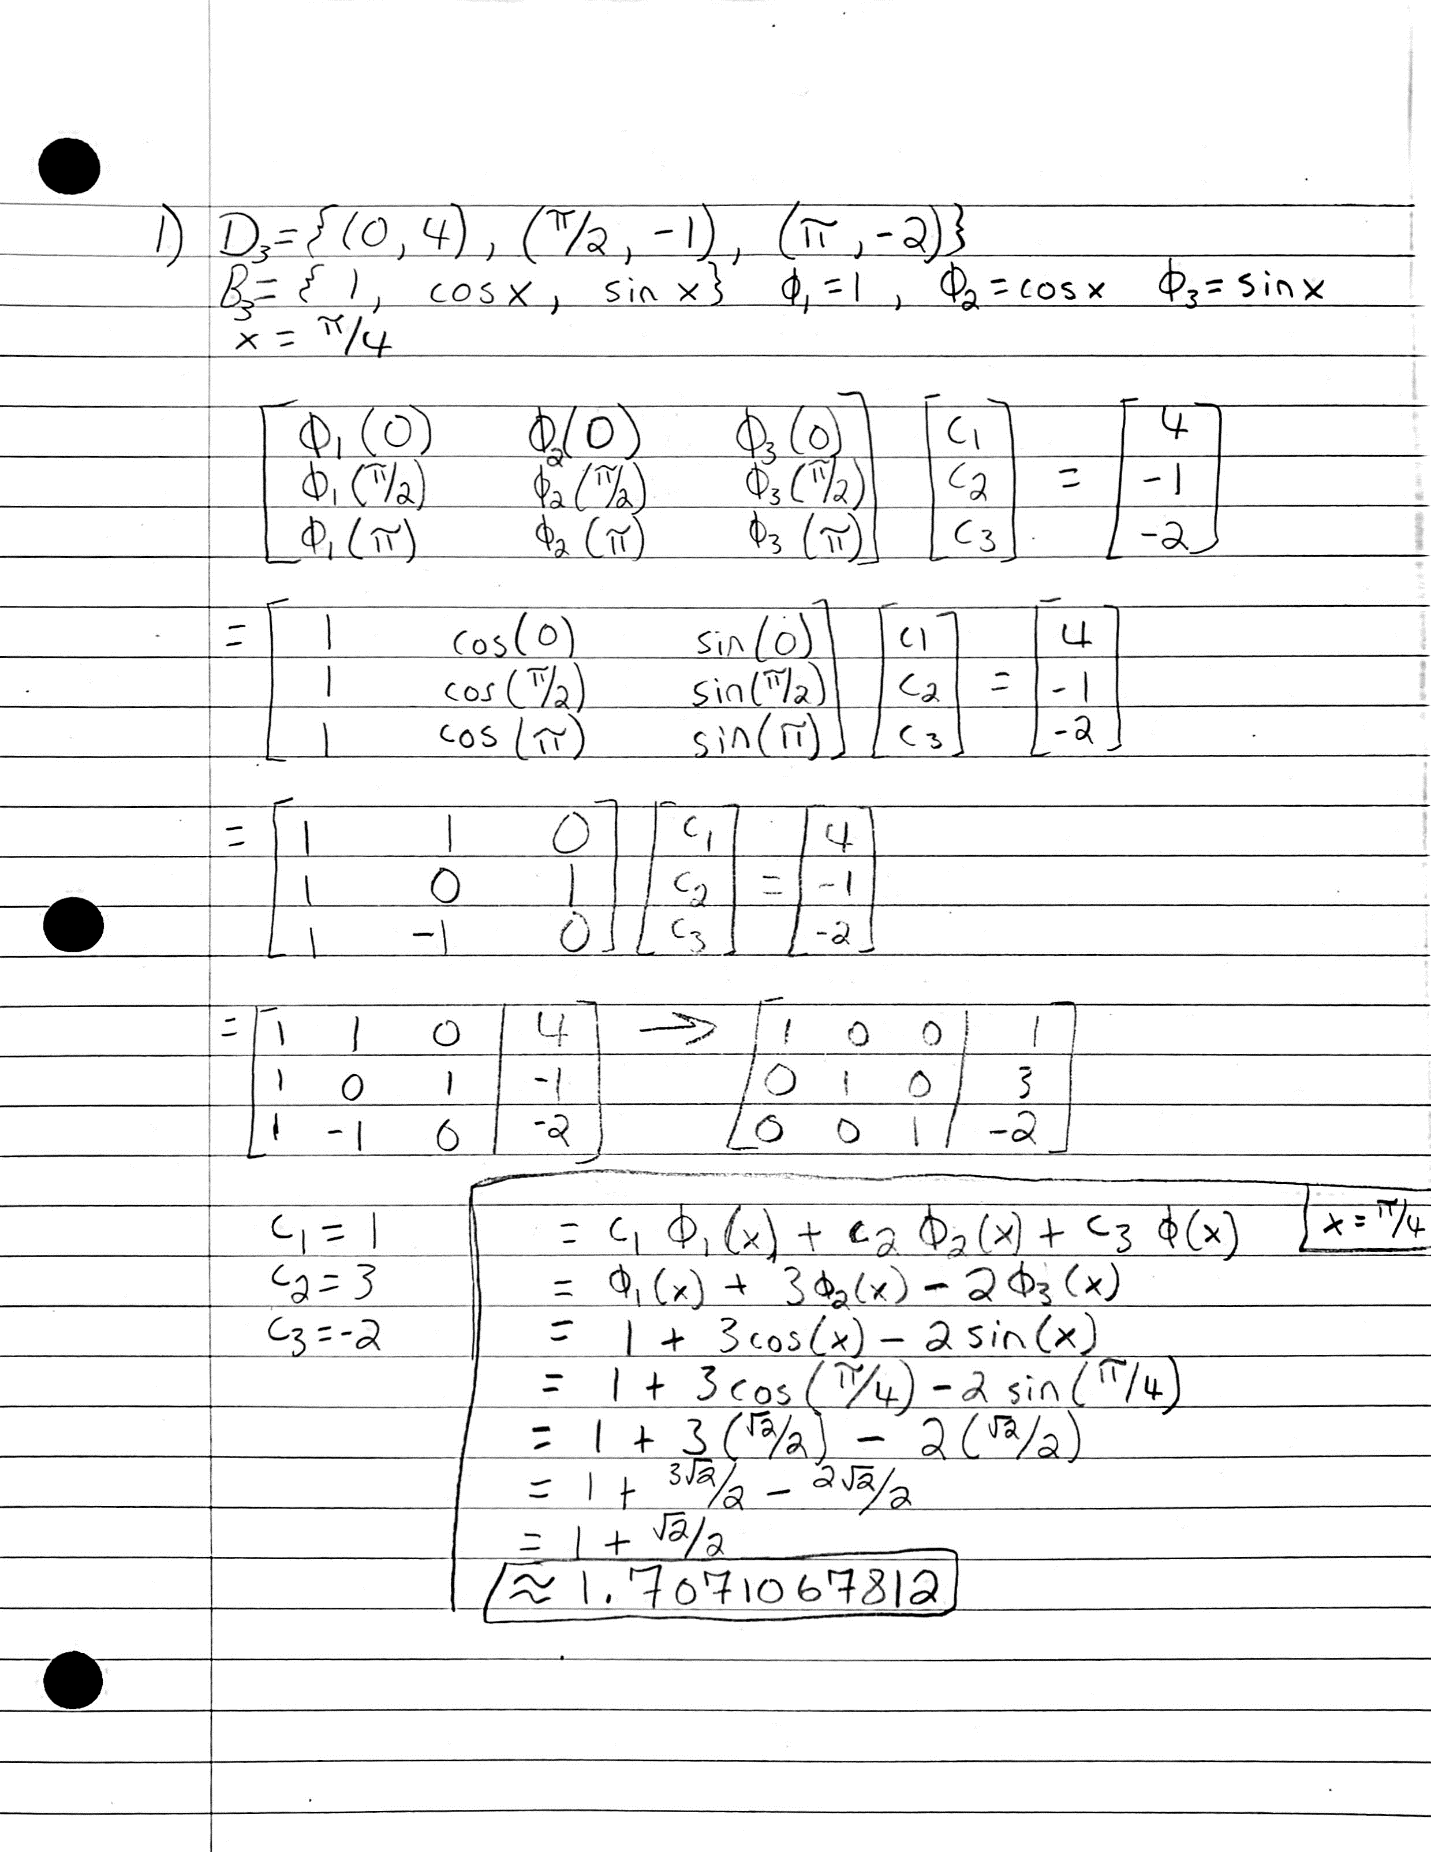 1) D₃={(0, 4), (π/2, -1), (π, -2)}
B₃= { 1, cosx, sin x} ϕ₁=1, ϕ₂=cosx ϕ₃=sinx
x = π/4
[ϕ₁(0) ϕ₂(0) ϕ₃(0)] [c₁] [4]
[ϕ₁(π/2) ϕ₂(π/2) ϕ₃(π/2)] [c₂] = [-1]
[ϕ₁(π) ϕ₂(π) ϕ₃(π)] [c₃] [-2]
= [1 cos(0) sin(0)] [c1] [4]
[1 cos(π/2) sin(π/2)] [c₂] = [-1]
[1 cos(π) sin(π)] [c₃] [-2]
= [1 1 0] [c₁] [4]
[1 0 1] [c₂] = [-1]
[1 -1 0] [c₃] [-2]
= [1 1 0 | 4] → [1 0 0 | 1]
[1 0 1 | -1] [0 1 0 | 3]
[1 -1 0 | -2] [0 0 1 | -2]
c₁ = 1
c₂=3
c₃=-2
= c₁ ϕ₁(x) + c₂ ϕ₂(x) + c₃ ϕ(x) x=π/4
= ϕ₁(x) + 3ϕ₂(x) - 2ϕ₃(x)
= 1 + 3cos(x) - 2sin(x)
= 1 + 3cos(π/4) - 2 sin(π/4)
= 1 + 3(√2/2) - 2(√2/2)
= 1 + 3√2/2 - 2√2/2
= 1 + √2/2
≈ 1.7071067812